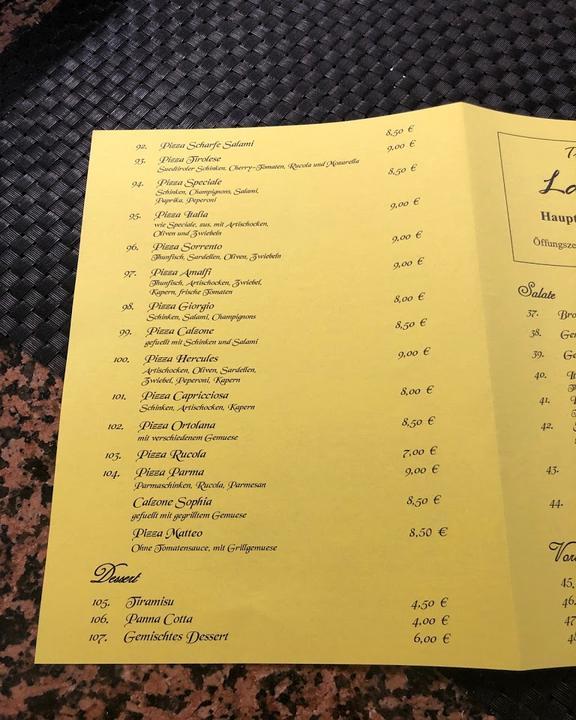 92. Pizza Scharfe Salami 8,50 €
93. Pizza Tirolese 9,00 €
Suedtiroler Schinken, Cherry-Tomaten, Rucola und Mozzarella
94. Pizza Speciale 8,50 €
Schinken, Champignons, Salami,
Paprika, Peperoni
95. Pizza Italia 9,00 €
wie Speciale, zus. mit Artischocken,
Oliven und Zwiebeln
96. Pizza Sorrento 9,00 €
Thunfisch, Sardellen, Oliven, Zwiebeln
97. Pizza Amalfi 9,00 €
Thunfisch, Artischocken, Zwiebel,
Kapern, frische Tomaten
98. Pizza Giorgio 8,00 €
Schinken, Salami, Champignons
99. Pizza Calzone 8,50 €
gefuellt mit Schinken und Salami
100. Pizza Hercules 9,00 €
Artischocken, Oliven, Sardellen,
Zwiebel, Peperoni, Kapern
101. Pizza Capricciosa 8,00 €
Schinken, Artischocken, Kapern
102. Pizza Ortolana 8,50 €
mit verschiedenem Gemuese
103. Pizza Rucola 7,00 €
104. Pizza Parma 9,00 €
Parmaschinken, Rucola, Parmesan
Calzone Sophia 8,50 €
gefuellt mit gegrilltem Gemuese
Pizza Matteo 8,50 €
Ohne Tomatensauce, mit Grillgemuese
Dessert
105. Tiramisu 4,50 €
106. Panna Cotta 4,00 €
107. Gemischtes Dessert 6,00 €
Haupt
Öffungsze
Salate
37. Bro
38. Gem
39. Ge
40.
41.
42.
43.
44.
Vor
45.
46.
47
48